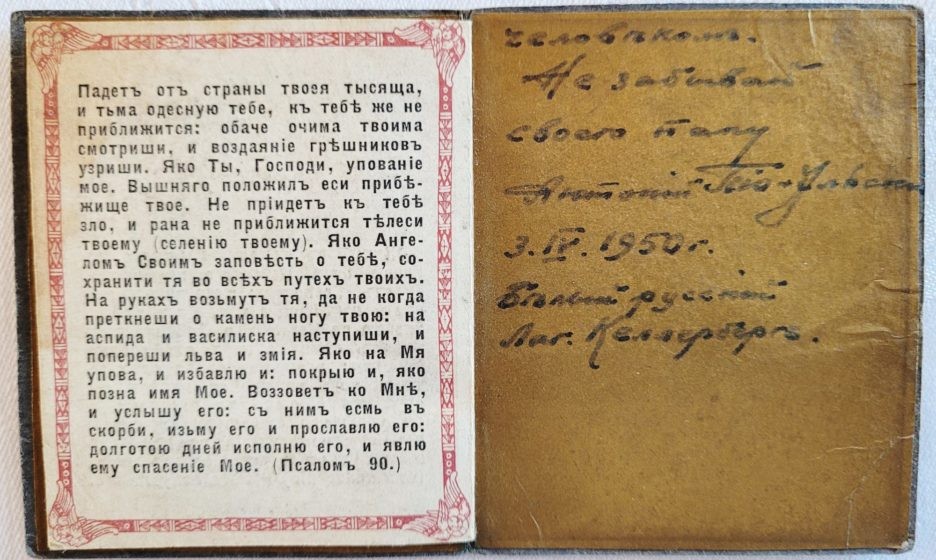 Падетъ отъ страны твоея тысяща,
и тьма одесную тебе, къ тебѣ же не
приближится: обаче очима твоима
смотриши, и воздаяніе грѣшниковъ
узриши. Яко Ты, Господи, упованіе
мое. Вышняго положил еси прибѣ-
жище твое. Не пріидетъ къ тебѣ
зло, и рана не приближится тѣлеси
твоему (селенію твоему). Яко Анге-
ломъ Своимъ заповѣсть о тебѣ, со-
хранити тя во всѣхъ путехъ твоихъ.
На рукахъ возьмутъ тя, да не когда
преткнеши о камень ногу твою: на
аспида и василиска наступиши, и
попереши льва и змія. Яко на Мя
упова, и избавлю и: покрыю и, яко
позна имя Мое. Воззоветъ ко Мнѣ,
и услышу его: съ нимъ есмь въ
скорби, изьму его и прославлю его:
долготою дней исполню его, и явлю
ему спасеніе Мое. (Псаломъ 90.)
человѣкомъ.
Не забывай
своего папу
Антоній
3.IV.1950г.
Бѣлый русскій
Лаг. Келлербергъ.